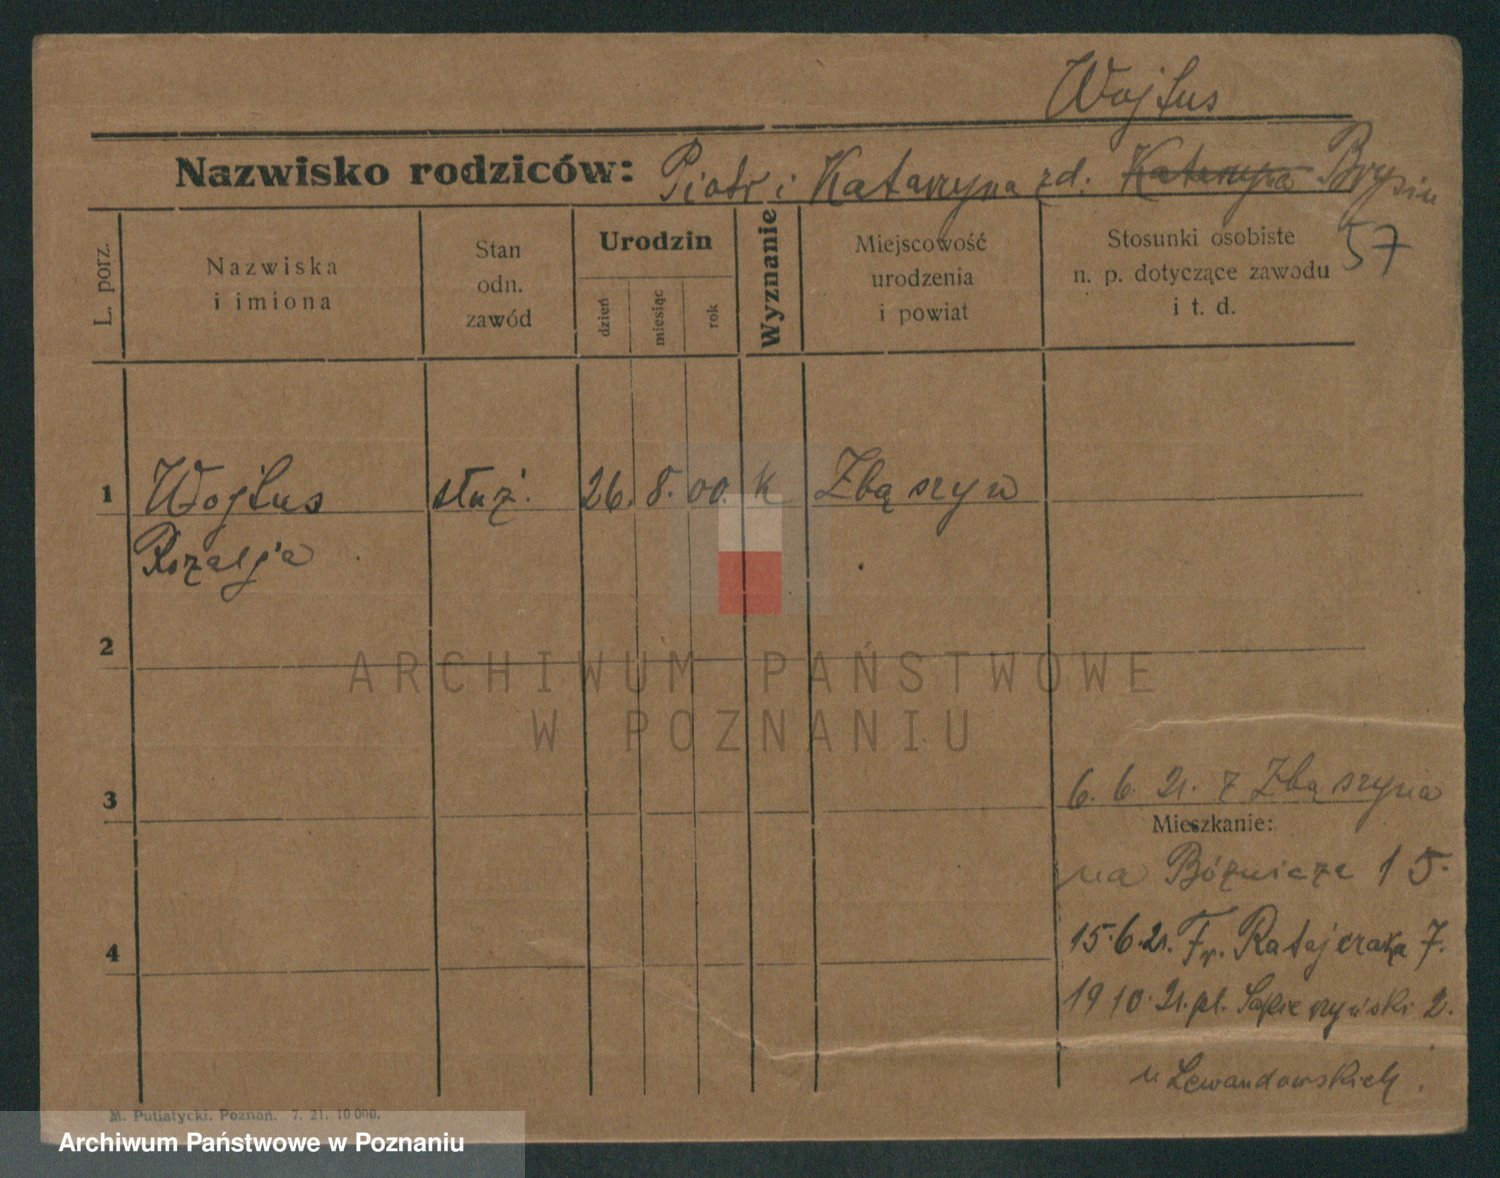 Wojtus
Nazwisko rodziców: Piotr i Katarzyna zd. Katarzyna
57
L. porz.
Nazwiska
i imiona
Stan
odn.
zawód
Urodzin
dzień
miesiąc
rok
Wyznanie
Miejscowość
urodzenia
i powiat
Stosunki osobiste
n. p. dotyczące zawodu
i t. d.
1 Wojtus służ. 26. 8. 00. K Zbąszyn
Rozalja
2
ARCHIWUM PAŃSTWOWE
W POZNANIU
3
6. 6 21. z Zbąszynia
Mieszkanie:
na Bóżnicze 15.
4
15.6.21. Fr. Ratajczaka 7.
19 10. 21. pl. Sapieżyński 2.
u Lewandowskich.
M. Putiatycki. Poznań. 7. 21. 10 000.
Archiwum Państwowe w Poznaniu